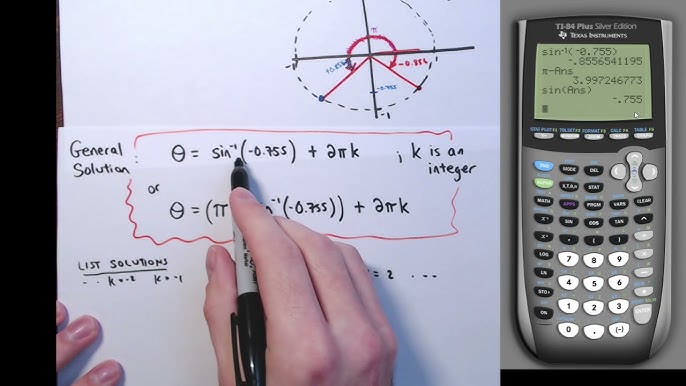 π
-0.856
-.755
-1
General
Solution:
θ = sin⁻¹(-0.755) + 2πk ; k is an
integer
or
θ = (π sin⁻¹(-0.755)) + 2πk
LIST SOLUTIONS
... k=-2 k=-1 = 2 ...
TI-84 Plus Silver Edition
TEXAS INSTRUMENTS
sin⁻¹(-0.755)
-.8556541195
π-Ans
3.997246773
sin(Ans)
-.755
STAT PLOT F1 TBLSET F2 FORMAT F3 CALC F4 TABLE F5
MODE DEL
ALPHA X,T,θ,n STAT
MATH APPS PRGM VARS CLEAR
x⁻¹ SIN COS TAN ^
x² , ( ) ÷
LOG 7 8 9 ×
LN 4 5 6 −
STO 1 2 3 +
ON 0 . (-) ENTER